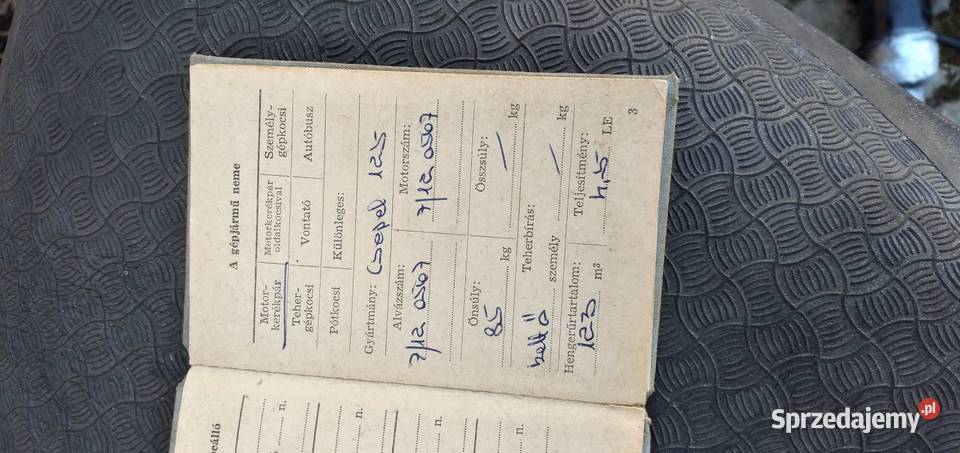 A gépjármű neme
Motor-
kerékpár
Motorkerékpár
oldalkocsival
Személy-
gépkocsi
Teher-
gépkocsi
Vontató
Autóbusz
Pótkocsi
Különleges:
Gyártmány: Csepel 125
Alvázszám:
Motorszám:
7/12 0567
7/12 0567
Önsúly:
Összsúly:
85 kg
— kg
Teherbírás:
kettő személy
— kg
Hengerűrtartalom:
Teljesítmény:
123 m³
4,5 LE
3
beálló
n.
n.
n.
n.
n.
Sprzedajemy.pl